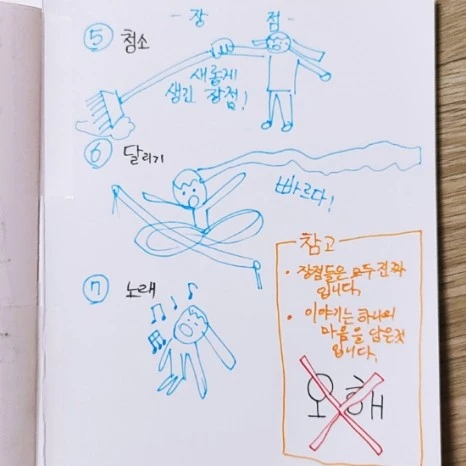 - 장 점 -
⑤ 청소
새롭게
생긴 장점!
⑥ 달리기
빠르다!
⑦ 노래
참고
• 장점들은 모두 진짜
입니다.
• 이야기는 하나의
마음을 담은것
입니다.
오해